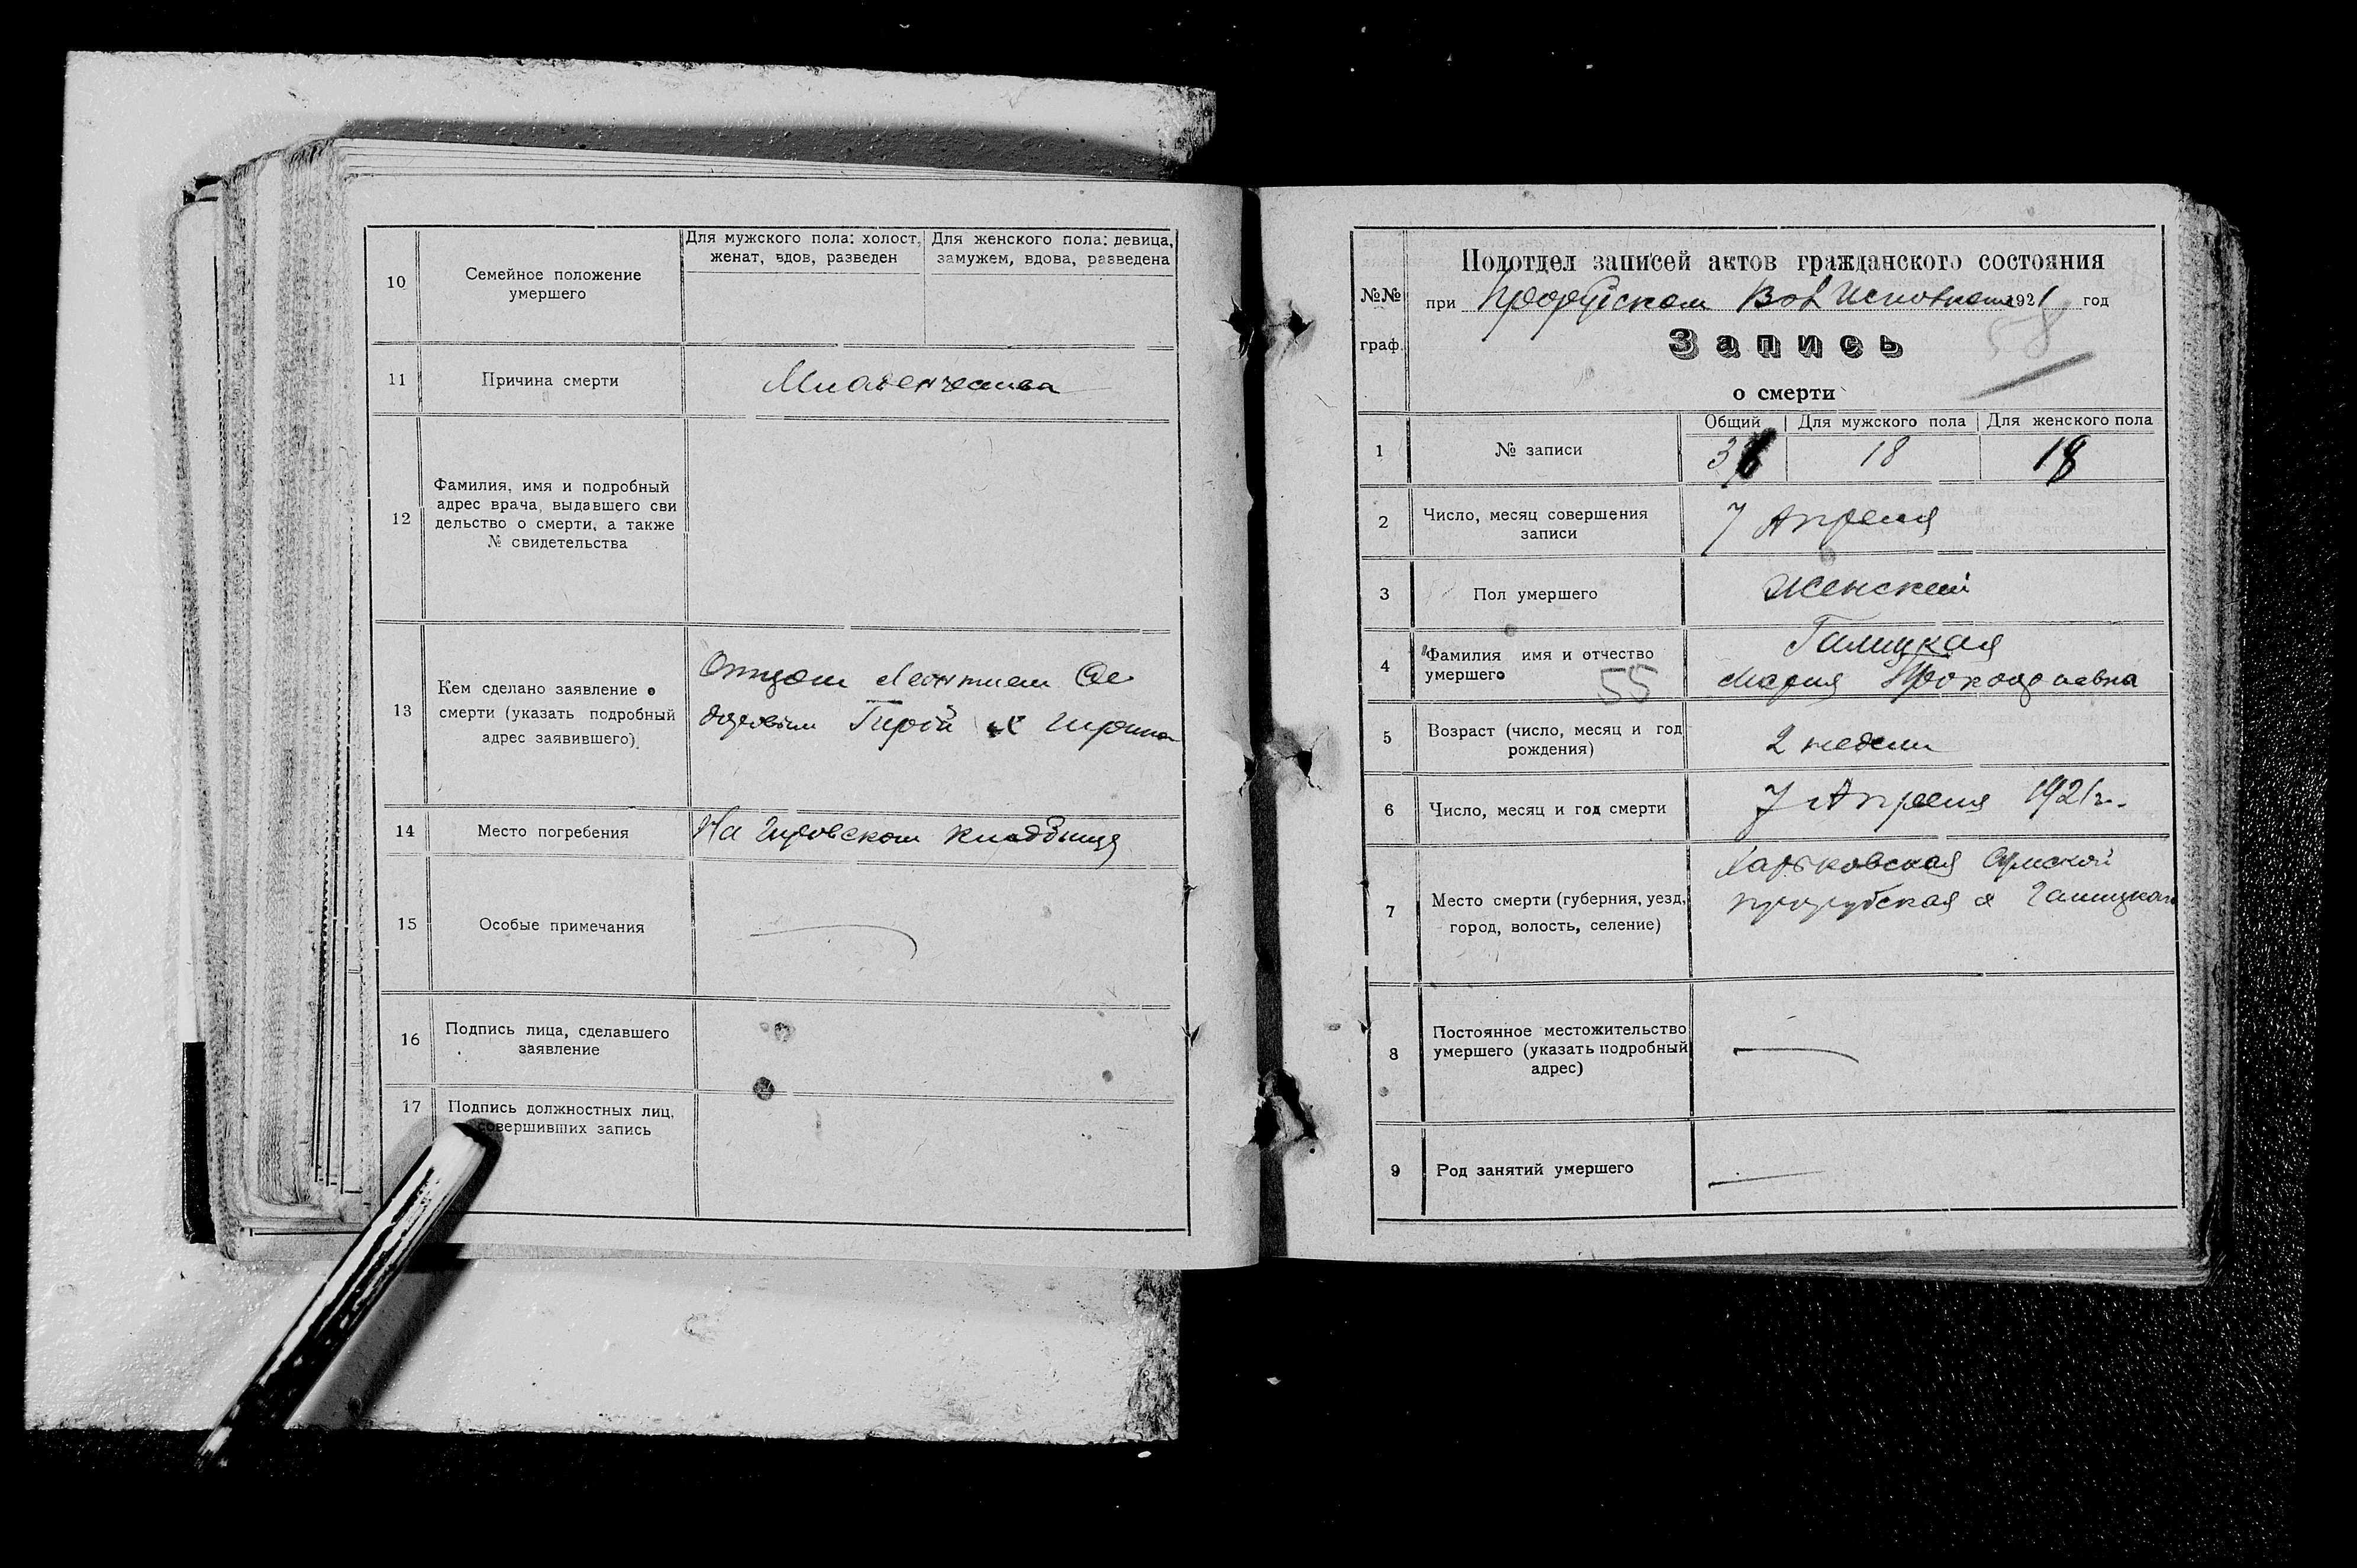 10
Семейное положение
умершего
Для мужского пола: холост,
женат, вдов, разведен
Для женского пола: девица,
замужем, вдова, разведена
11
Причина смерти
Младенчества
12
Фамилия, имя и подробный
адрес врача, выдавшего сви
дельство о смерти, а также
№ свидетельства
13
Кем сделано заявление о
смерти (указать подробный
адрес заявившего)
Отцом Леонтием Фе
доровым
14
Место погребения
На кладбище
15
Особые примечания
16
Подпись лица, сделавшего
заявление
17
Подпись должностных лиц,
совершивших запись
№№
граф.
Подотдел записей актов гражданского состояния
при Вол Исполкоме 1921 год
58
Запись
о смерти
1
№ записи
Общий
Для мужского пола
Для женского пола
36
18
18
2
Число, месяц совершения
записи
7 Апреля
3
Пол умершего
Женский
4
Фамилия имя и отчество
умершего
55
Галицкая
Мария
5
Возраст (число, месяц и год
рождения)
2 недели
6
Число, месяц и год смерти
7 Апреля 1921 г.
7
Место смерти (губерния, уезд,
город, волость, селение)
Харьковская Сумской
8
Постоянное местожительство
умершего (указать подробный
адрес)
9
Род занятий умершего